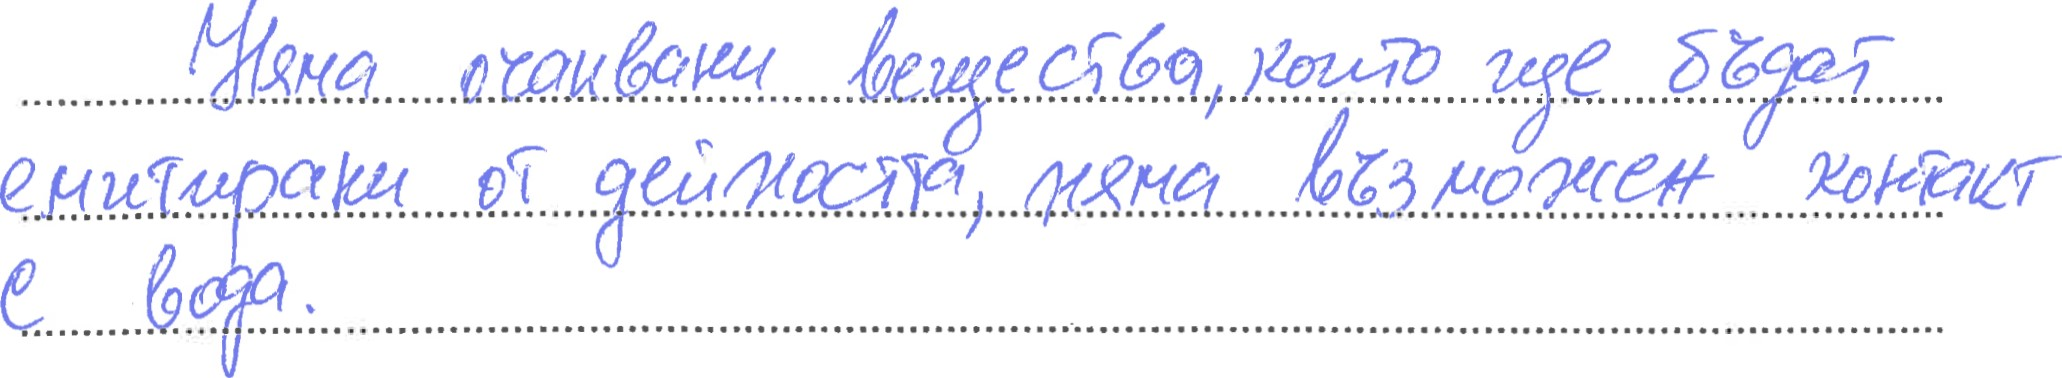 Няма очаквани вещества, които ще бъдат
емитирани от дейността, няма възможен контакт
с вода.